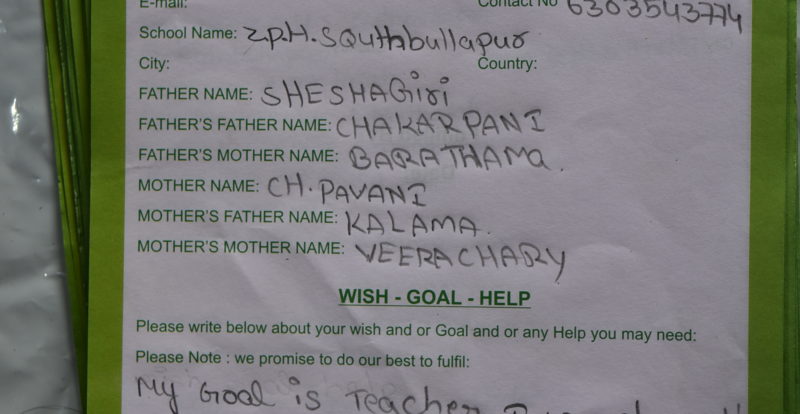 E-mail: Contact No 6303543774
School Name: Z.P.H.S Quthbullapur
City: Country:
FATHER NAME: SHESHAGiri
FATHER'S FATHER NAME: CHAKARPANI
FATHER'S MOTHER NAME: BARATHAMa.
MOTHER NAME: CH. PAVANI
MOTHER'S FATHER NAME: KALAMA.
MOTHER'S MOTHER NAME: VEERACHARY
WISH - GOAL - HELP
Please write below about your wish and or Goal and or any Help you may need:
Please Note : we promise to do our best to fulfil:
My Goal is Teacher